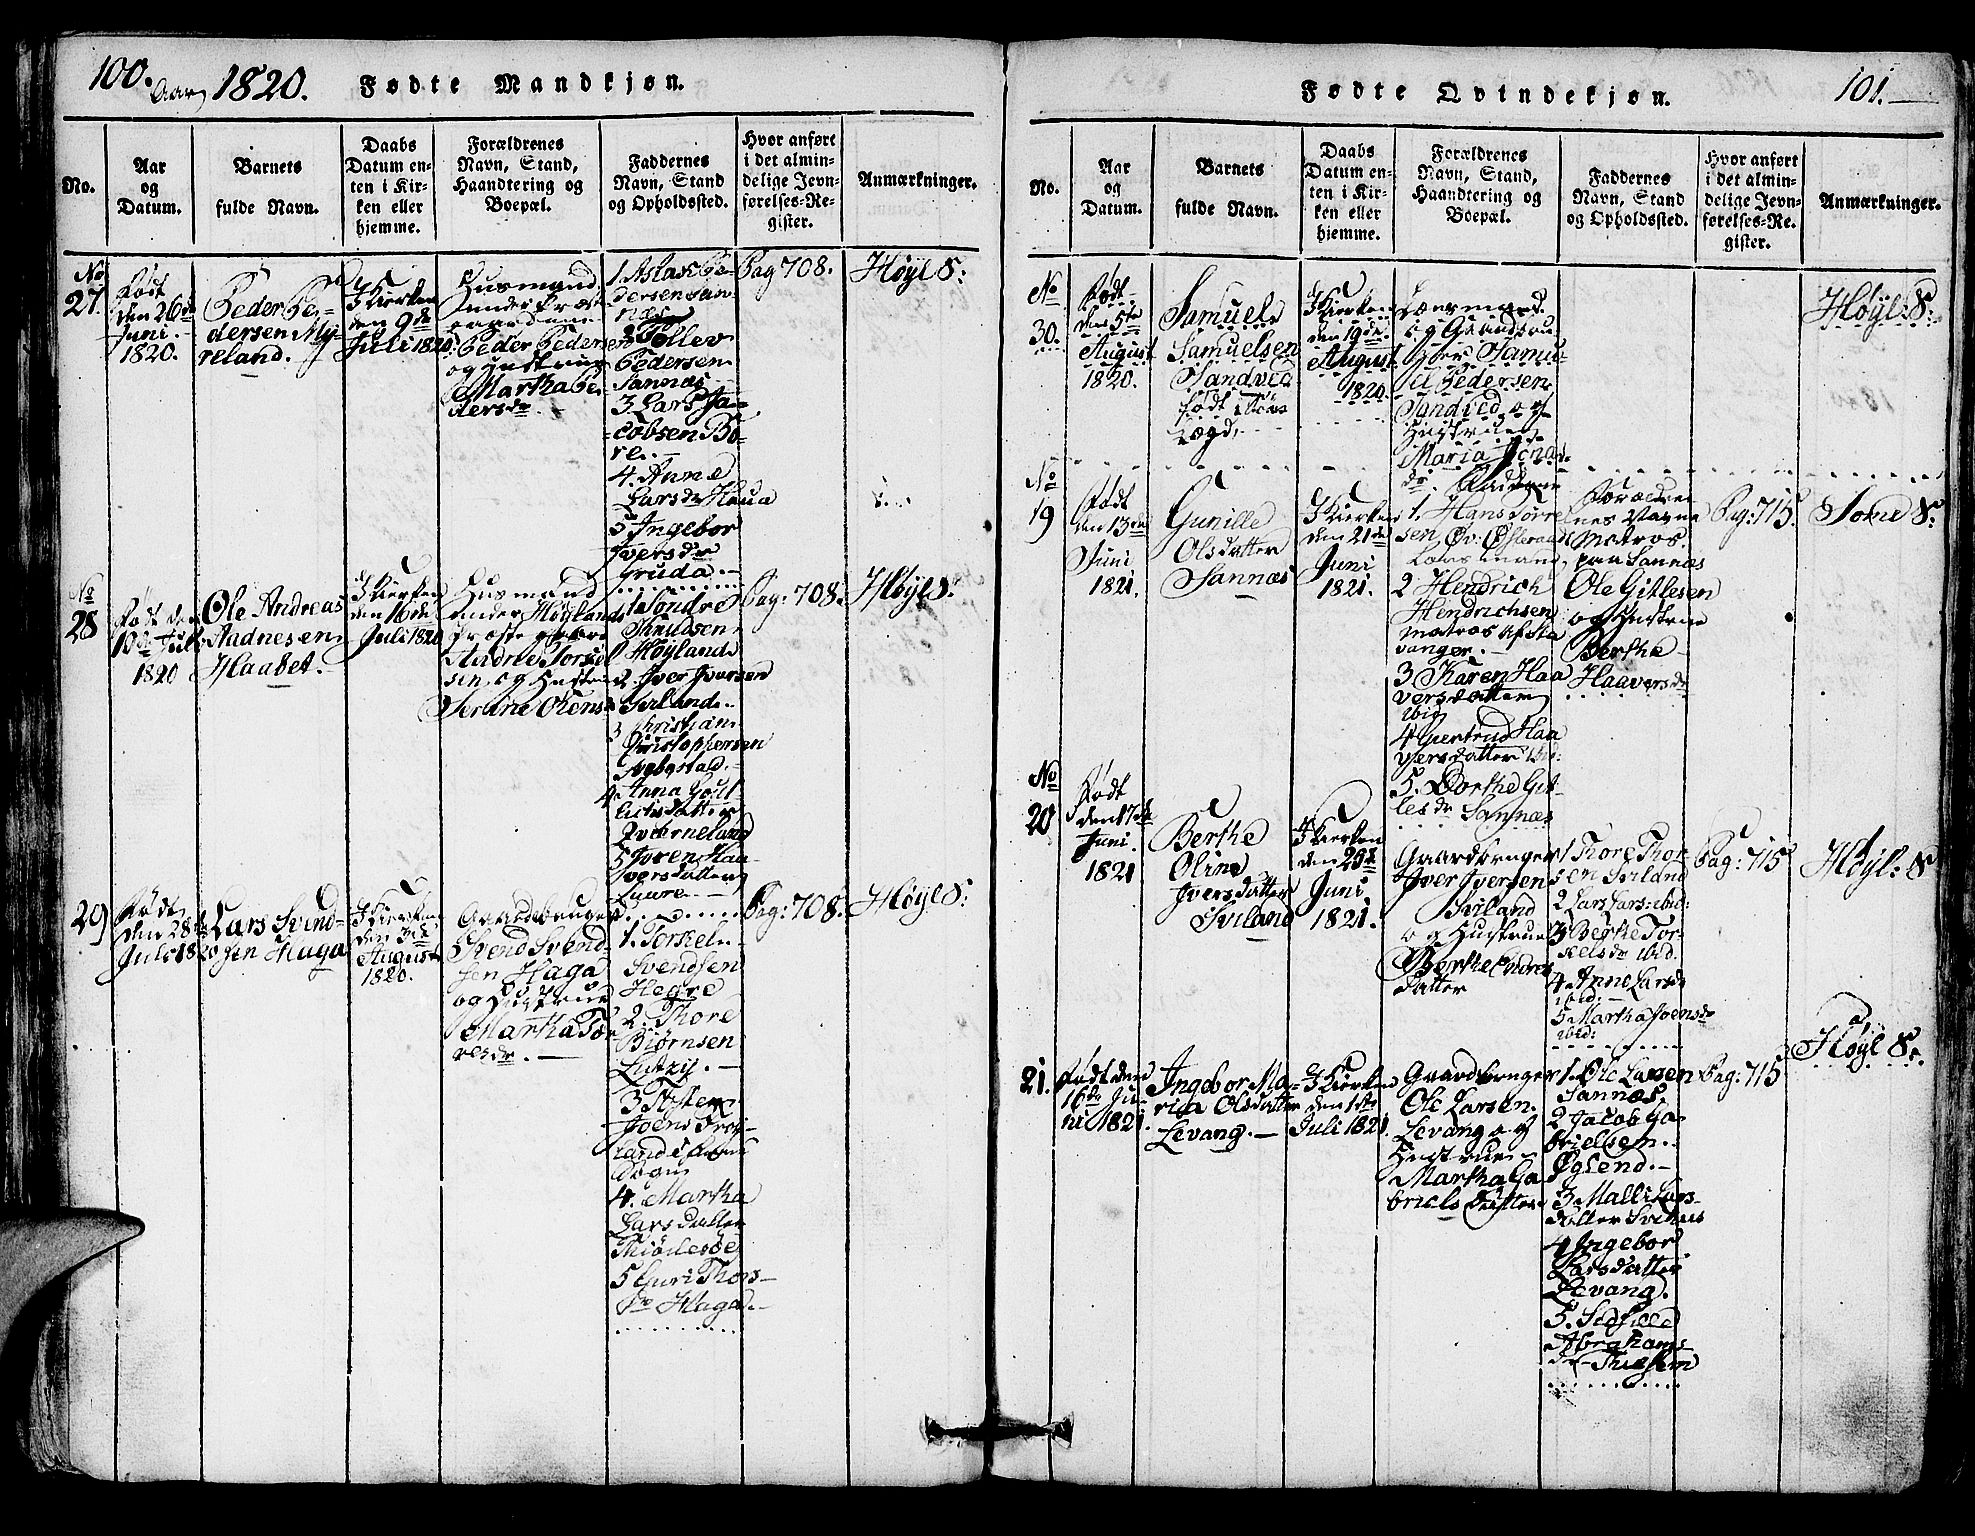 100. Aar 1820. Fødte Mandkjøn.
No.
Aar
og
Datum.
Barnets
fulde Navn.
Daabs
Datum en-
ten i Kir-
ken eller
hjemme.
Forældrenes
Navn, Stand,
Haandtering og
Boepæl.
Faddernes
Navn, Stand
og Opholdssted.
Hvor anført
i det almin-
delige Jevn-
førelses-Re-
gister.
Anmærkninger.
No
27.
Født
den 26de
Juni
1820.
Peder Pe-
dersen My-
reland.
I Kierken
den 9de
Juli 1820.
Husmand
under Præste
gaardene
Peder Pedersen
og Hustrue
Martha Pe-
dersdr.
1 Aslak Pe-
dersen San-
næs
2 Tollev
Pedersen
Sannæs
3 Lars Ja-
cobsen Bo-
re.
4. Anne
Larsdr Haua
5 Ingebor
Iversdr
Gruda.
Pag 708.
Høyl S:
No
28
Født den
10de Juli
1820
Ole Andreas
Aadnesen
Haabet.
I Kierken
den 16de
Juli 1820
Husmand
under Høylands
Præste gaard
Aadne Torkel
sen og Hustrue
Serine Olens
1 Sondre
Knudsen
Høyland
2. Iver Iversen
3 Christian
Christophersen
4. Anna
Qværneland
5 Joren Haa-
versdatter
Laure.
Pag: 708.
Høyl S:
29
Født
den 28de
Juli 1820
Lars Svend-
sen Haga
I Kierken
den 3de
August
1820.
Gaardbruger
Svend Svend-
sen Haga
og Hustrue
Martha Tor
resdr.
1. Torkel
Svendsen
Hegre
2. Thore
Biørnsen
3 Tosten
Joensen
4. Martha
Larsdatter
5 Guri Thors-
dr Haga.
Pag: 708.
Høyl S:
Fødte Qvindekjøn. 101.
No.
Aar
og
Datum.
Barnets
fulde Navn.
Daabs
Datum en-
ten i Kir-
ken eller
hjemme.
Forældrenes
Navn, Stand,
Haandtering og
Boepæl.
Faddernes
Navn, Stand
og Opholdssted.
Hvor anført
i det almin-
delige Jevn-
førelses-Re-
gister.
Anmærkninger.
No
30.
Født
den 5te
August
1820.
Samuel
Samuelsen
Sandved
født
I Kierken
den 19de
August
1820
Lænsmand
og Gaardbru-
ger Samu-
el Pedersen
Sandved og
Hustrue
Maria Jonæ-
dr.
Høyl: S:
No
19
Født
den 13de
Juni
1821.
Gunille
Olsdatter
Sannæs
I Kierken
den 21de
Juni
1821.
Fadderne
1. Hans Tørre
sen
2 Hendrich
Hendrichsen
Matros af Sta
vanger.
3 Karen Haa
versdatter
ibid
4 Gertrud Haa
versdatter ibid:
5. Dorthe Git-
lesdr Sannæs
Forældre
nes Navne
Matros
paa Sannæs
Ole Gitlesen
og Hustrue
Berthe
Haaversdr
Pag: 715.
Sogne S:
No
20
Født
den 17de
Juni
1821
Berthe
Oline
Iversdatter
Sviland
I Kierken
Juni
1821.
Gaardbruger
Iver Iversen
Sviland
og Hustrue
Berthe Endres
datter
1 Thore Thor-
sen Sviland
2 Lars Lars: ibid:
3 Berthe Tor-
kelsdr ibid.
4. Anne Larsdr
ibid:
5 Martha Joensdr
ibid:
Pag: 715
Høyl: S
21.
Født den
16de Ju-
ni 1821.
Ingebor Ma-
ria Olsdatter
Levang.
I Kierken
den 1ste
Juli 1821.
Gaardbruger
Ole Larsen
Levang og
Hustrue
Martha Ga
briels datter
1. Ole Larsen
Sannæs.
2 Jacob Ga-
brielsen
Øglend.
3 Malli Lars-
datter
4 Ingebor
Larsdatter
Levang.
5. Sidselle
Abrahams-
dr
Pag: 715
Høyl S.